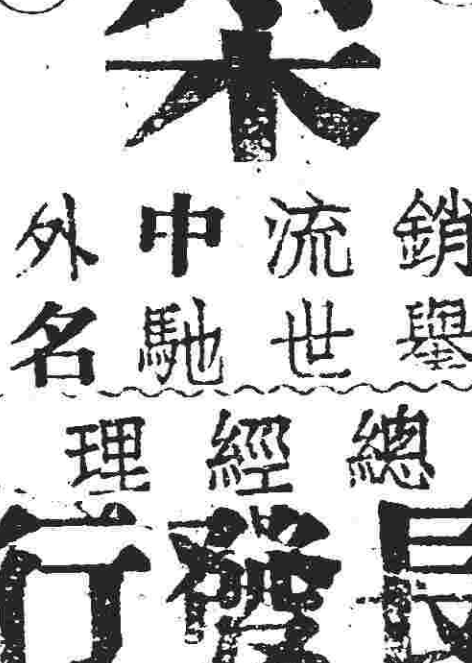 銷流中外
舉世馳名
總經理
發行